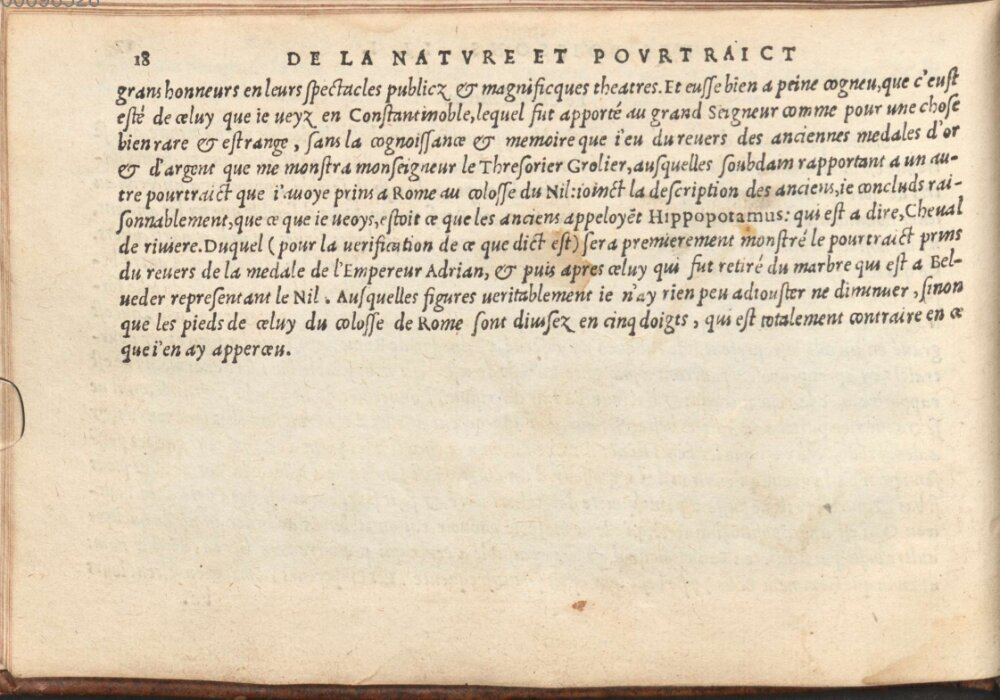 18 DE LA NATVRE ET POVRTRAICT
grans honneurs en leurs spectacles publicz & magnificques theatres. Et eusse bien a peine cogneu, que c'eust
esté de celuy que ie ueyz en Constantinoble, lequel fut apporté au grand Seigneur comme pour une chose
bien rare & estrange, sans la cognoissance & memoire que i'eu du reuers des anciennes medales d'or
& d'argent que me monstra monseigneur le Thresorier Grolier, ausquelles soubdam rapportant a un au-
tre pourtraict que i'auoye prins a Rome au colosse du Nil: ioinct la description des anciens, ie concluds rai-
sonnablement, que ce que ie ueoys, estoit ce que les anciens appeloyẽt Hippopotamus: qui est a dire, Cheval
de riuiere. Duquel (pour la uerification de ce que dict est) sera premierement monstré le pourtraict prins
du reuers de la medale de l'Empereur Adrian, & puis apres celuy qui fut retiré du marbre qui est a Bel-
ueder representant le Nil. Ausquelles figures ueritablement ie n'ay rien peu adiouster ne diminuer, sinon
que les pieds de celuy du colosse de Rome sont diuisez en cinq doigts, qui est totalement contraire en ce
que i'en ay apperceu.